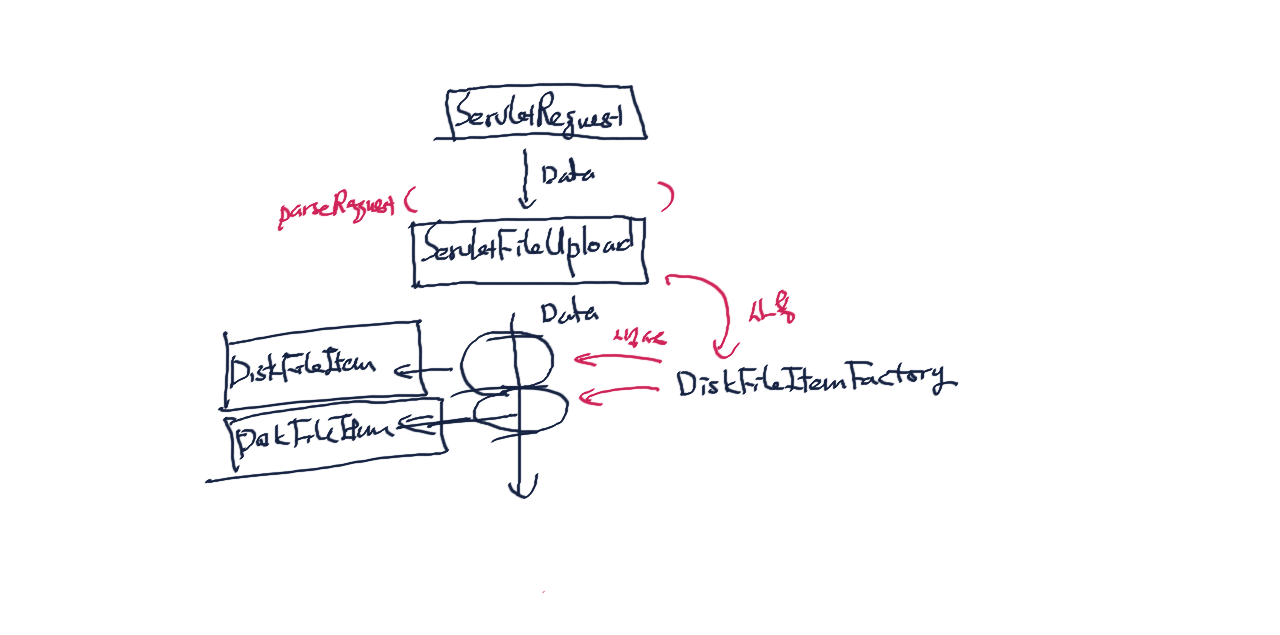 ServletRequest
Data
parseRequest ( )
ServletFileUpload
Data
사용
DiskFileItem
DiskFileItemFactory
DiskFileItem